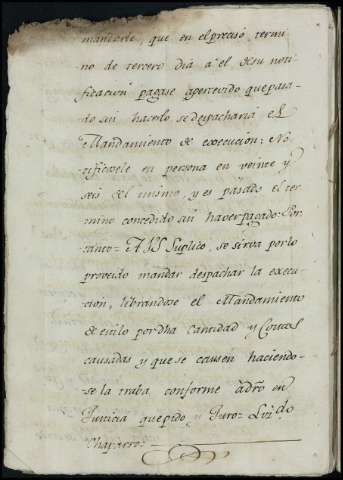 mandarle que en el preciso termi
no de tercero dia á el de su noti
ficacion pagase apercevido que pasa
do sin hacerlo se despacharia el
Mandamiento de execucion: No
tificósele en persona en veinte y
seis del mismo, y es pasado el ter
mino concedido sin haver pagado: Por
tanto= A VS Suplico, se sirva por lo
proveido mandar despachar la execu
cion, librandose el Mandamiento
de estilo por dha Cantidad y Costas
causadas y que se causen haciendo
se la traba conforme á dro en
Justicia que pido y Juro=
Chaparro=